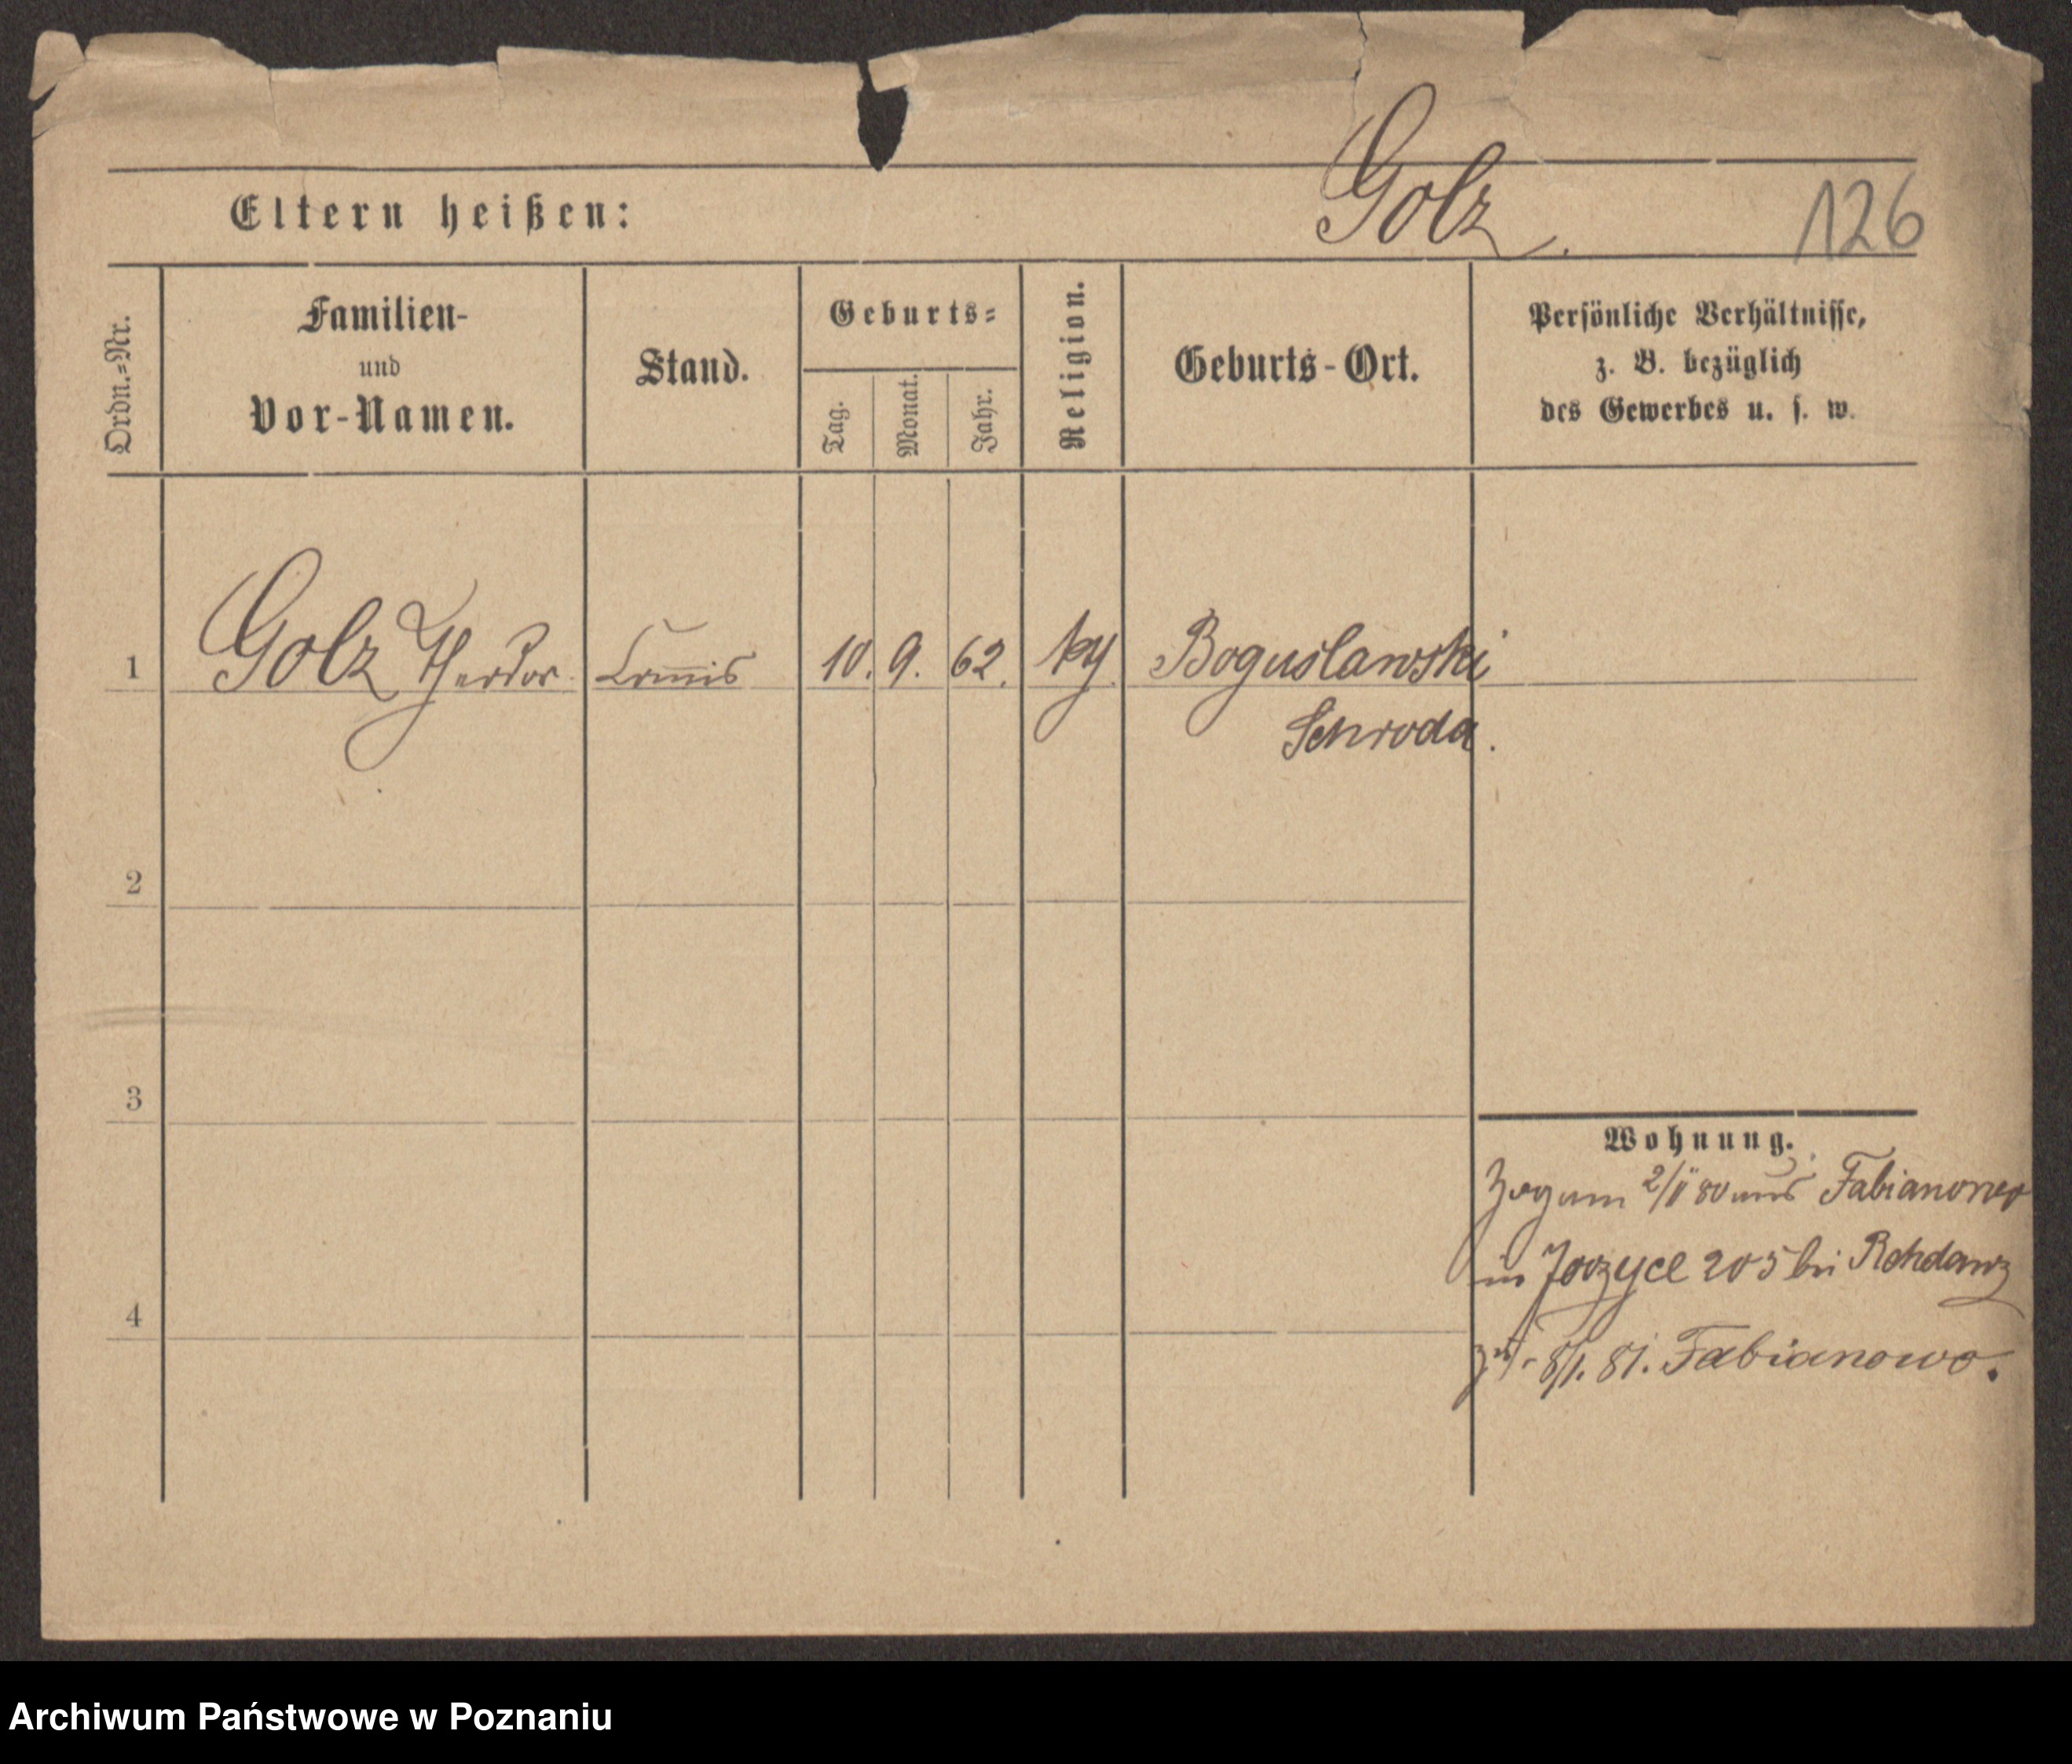 Eltern heißen:
Golz.
126
Ordn.=Nr.
Familien-
und
Vor-Namen.
Stand.
Geburts=
Tag.
Monat.
Jahr.
Religion.
Geburts-Ort.
Persönliche Verhältnisse,
z. B. bezüglich
des Gewerbes u. s. w.
1 Golz Theodor Com̅is 10. 9. 62. Boguslawski
Schroda.
2
3
4
Wohnung.
Zog am 2/II 80 aus Fabianowo
in 205 bei Rohdanz
8/1. 81. Fabianowo.
Archiwum Państwowe w Poznaniu